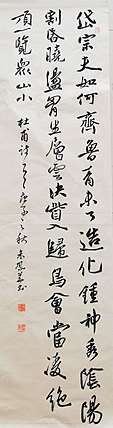 岱宗夫如何齊魯青未了造化鍾神秀陰陽
割昏曉盪胸生層雲決眥入歸鳥會當凌絕
頂一覽眾山小 杜甫詩 之秋